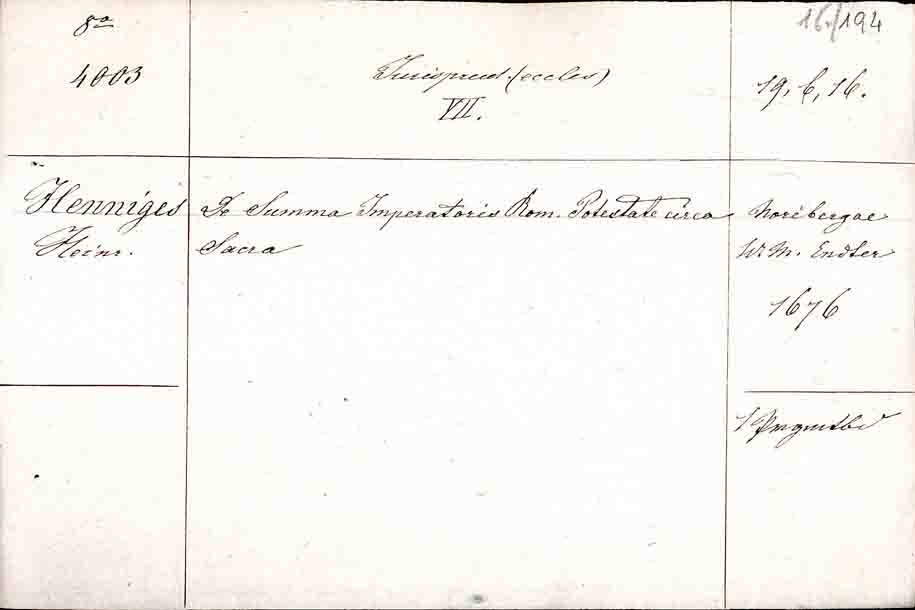 8º
4003
Jurisprud. (eccles)
VII.
16./194
19, 6, 16.
Henniges
Heinr.
De Summa Imperatoris Rom. Potestate circa
Sacra
Noribergae
W. M. Endter
1676
1 Prgmtbd